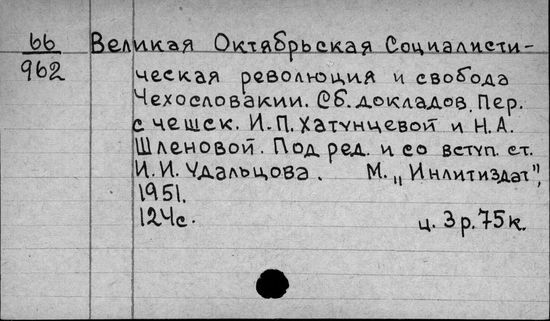 66 Великая Октябрьская Социалисти-
962 ческая революция и свобода
Чехословакии. Сб. докладов. Пер.
с чешск. И.П. Хатунцевой и Н.А.
Шленовой. Под ред. и со вступ. ст.
И.И. Удальцова. М. „Инлитиздат",
1951.
124с. ц. 3р. 75к.